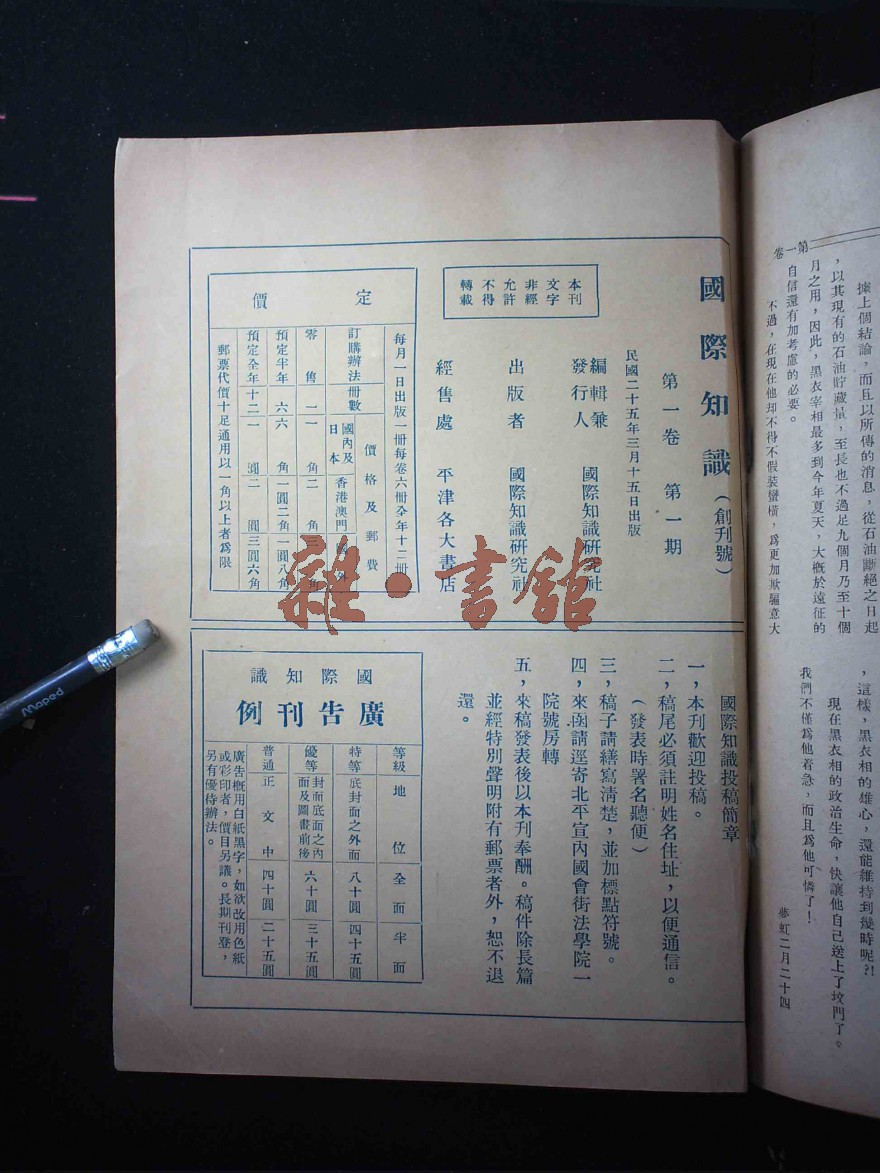 第一卷
據上個結論，而且以所傳的消息，從石油斷絕之日起
，以其現有的石油貯藏量，至長也不過足九個月乃至十個
月之用，因此，黑衣宰相最多到今年夏天，大概於遠征的
自信還有加考慮的必要。
不過，在現在他却不得不假裝蠻橫，爲更加欺騙意大
，這樣，黑衣相的雄心，還能維持到幾時呢?!
現在黑衣相的政治生命，快讓他自己送上了坟門了。
我們不僅爲他着急，而且爲他可憐了！
夢虹二月二十四
國際知識（創刊號）
第一卷 第一期
民國二十五年三月十五日出版
編輯兼
發行人 國際知識研究社
出版者 國際知識研究社
經售處 平津各大書店
本刊
文字
非經
允許
不得
轉載
定價
每月一日出版一冊每卷六冊全年十二冊
訂購辦法 冊數 價格及郵費
國內及日本 香港澳門 國外
零售 一 一角 二角 三角
預定半年 六 六角 一圓二角 一圓八角
預定全年 十二 一圓 二圓 三圓六角
郵票代價十足通用以一角以上者爲限
國際知識投稿簡章
一，本刊歡迎投稿。
二，稿尾必須註明姓名住址，以便通信。
（發表時署名聽便）
三，稿子請繕寫清楚，並加標點符號。
四，來函請逕寄北平宣內國會街法學院一
院號房轉
五，來稿發表後以本刊奉酬。稿件除長篇
並經特別聲明附有郵票者外，恕不退
還。
國際知識
廣告刊例
等級 地位 全面 半面
特等 底封面之外面 八十圓 四十五圓
優等 封面底面之內面及圖畫前後 六十圓 三十五圓
普通 正文中 四十圓 二十五圓
廣告概用白紙黑字，如欲改用色紙
或彩印者，價目另議。長期刊登，
另有優待辦法。
雜·書館
Maped